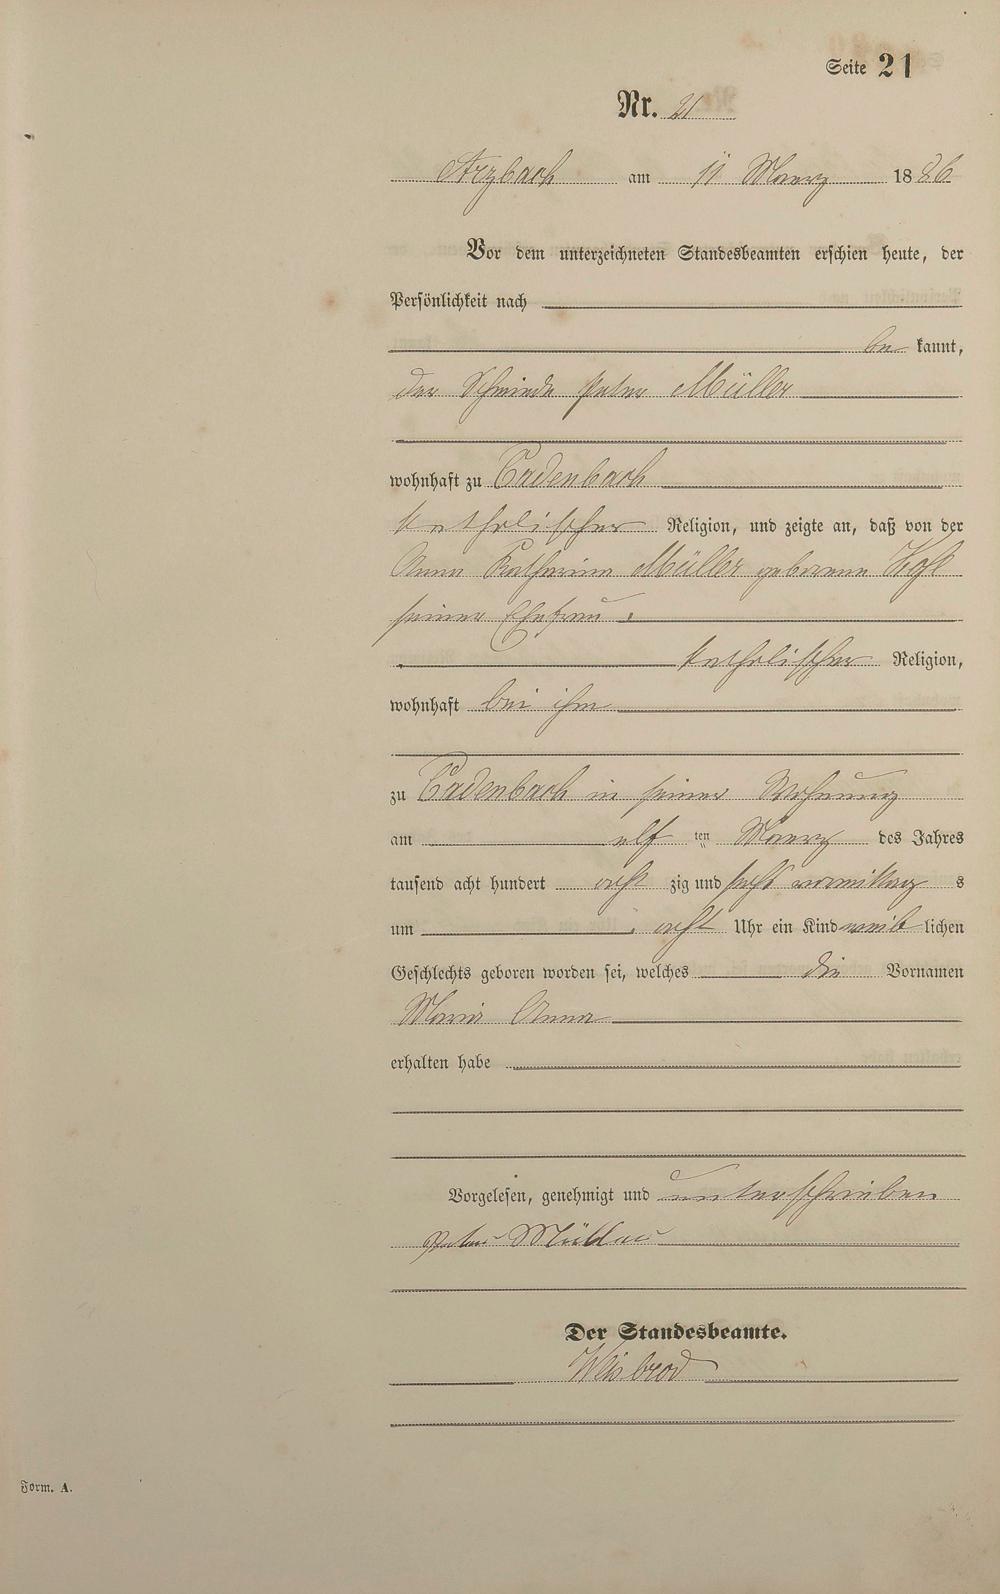 Seite 21
Nr. 21
Arzbach am 11 Maerz 1886
Vor dem unterzeichneten Standesbeamten erschien heute, der
Persönlichkeit nach
be kannt,
der Schmiede Peter Müller
wohnhaft zu Cadenbach
katholischer Religion, und zeigte an, daß von der
Anna Katharina Müller geborene
seiner Ehefrau,
katholischer Religion,
wohnhaft bei ihm
zu Cadenbach in seiner Wohnung
am elf ten Maerz des Jahres
tausend acht hundert acht zig und sechs vormittag s
um acht Uhr ein Kind weib lichen
Geschlechts geboren worden sei, welches die Vornamen
Maria Anna
erhalten habe
Vorgelesen, genehmigt und unterschrieben
Peter Müller
Der Standesbeamte.
Weisbrod
Form. A.